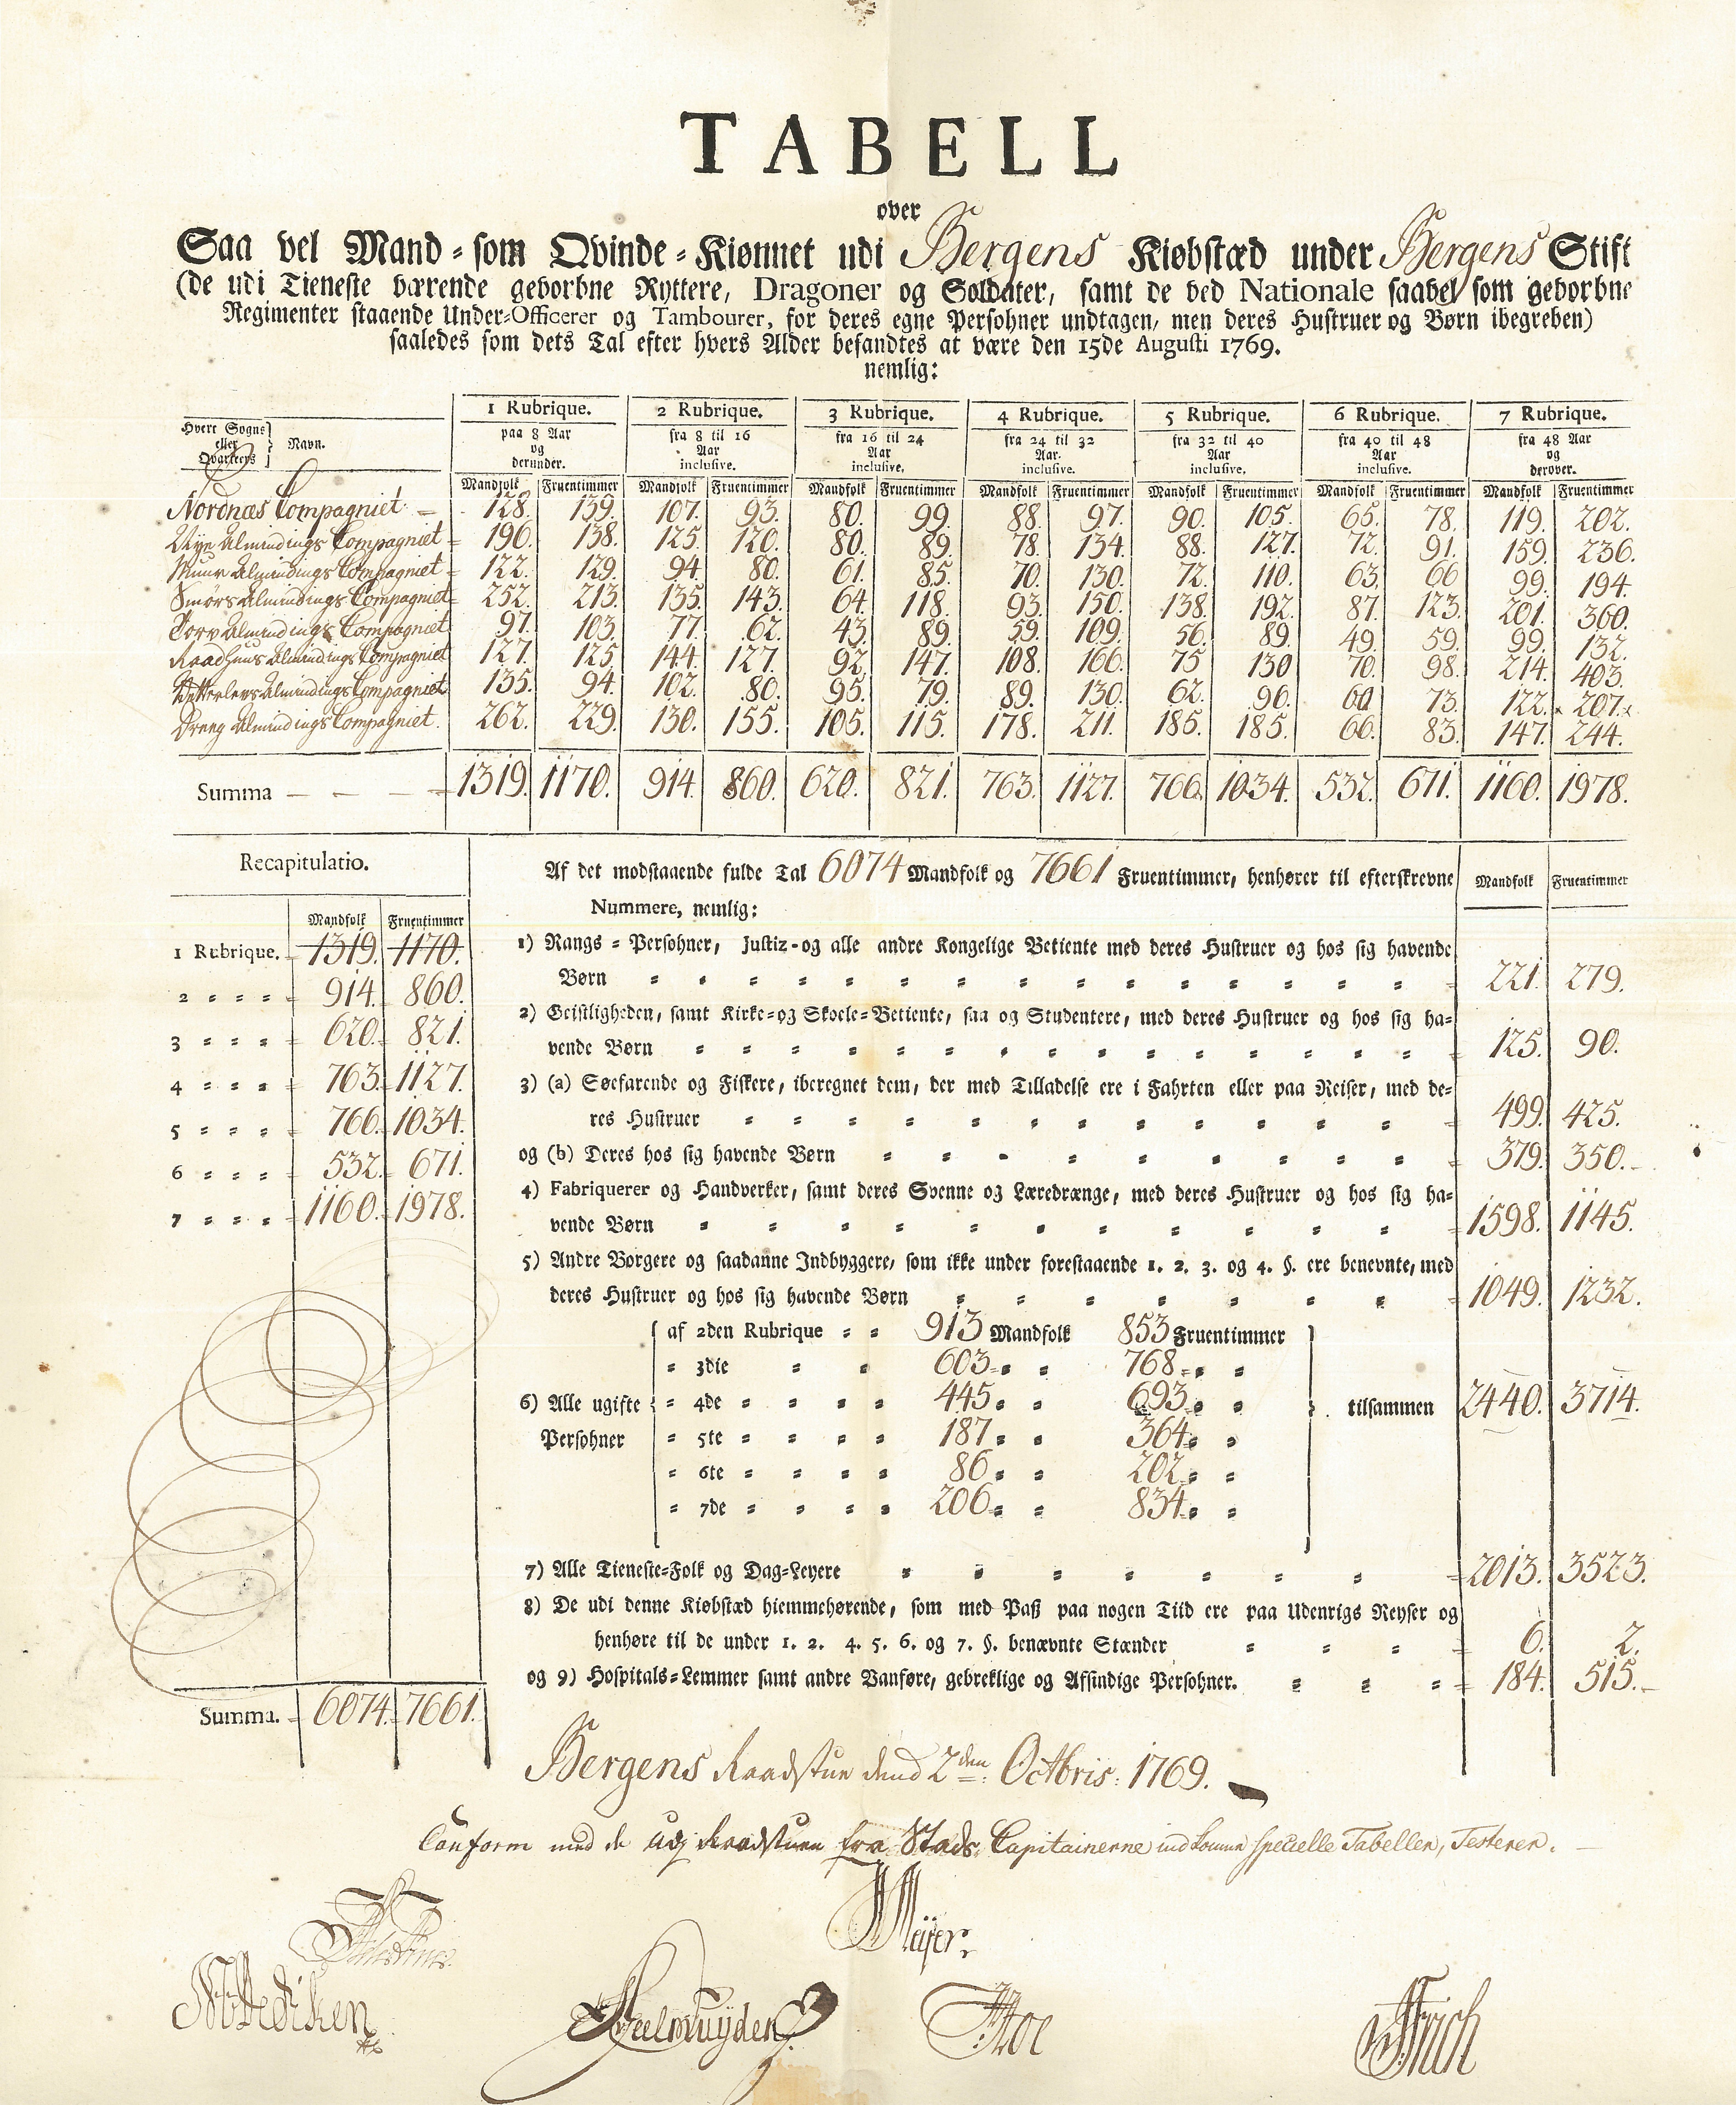 TABELL
over
Saa vel Mand-som Qvinde-Kiønnet udi Bergens Kiøbstæd under Bergens Stift
(de udi Tieneste værende gevorbne Ryttere, Dragoner og Soldater, samt de ved Nationale saavel som gevorbne
Regimenter staaende Under-Officerer og Tambourer, for deres egne Persohner undtagen, men deres Hustruer og Børn ibegreben)
saaledes som dets Tal efter hvers Alder befandtes at være den 15de Augusti 1769.
nemlig:
1 Rubrique. 2 Rubrique. 3 Rubrique. 4 Rubrique. 5 Rubrique. 6 Rubrique. 7 Rubrique.
Hvert Sogns eller Qvarteers Navn. paa 8 Aar og derunder. fra 8 til 16 Aar inclusive. fra 16 til 24 Aar inclusive. fra 24 til 32 Aar. inclusive. fra 32 til 40 Aar inclusive. fra 40 til 48 Aar inclusive. fra 48 Aar og derover.
Mandfolk Fruentimmer Mandfolk Fruentimmer Mandfolk Fruentimmer Mandfolk Fruentimmer Mandfolk Fruentimmer Mandfolk Fruentimmer Mandfolk Fruentimmer
Nordnæs Compagniet 128. 139. 107. 93. 80. 99. 88. 97. 90. 105. 65. 78. 119. 202.
Nye Almindings Compagniet 196. 138. 125. 120. 80. 89. 78. 134. 88. 127. 72. 91. 159. 236.
Muur Almindings Compagniet 122. 129. 94. 80. 61. 85. 70. 130. 72. 110. 63. 66 99. 194.
Smørs Almindings Compagniet 252. 213. 135. 143. 64. 118. 93. 150. 138. 192. 87. 123. 201. 360.
Torv Almindings Compagniet 97. 103. 77. 62. 43. 89. 59. 109. 56. 89. 49. 59. 99. 132.
Raadhuus Almindings Compagniet 127. 125. 144. 127. 92. 147. 108. 166. 75 130 70. 98. 214. 403.
Almindings Compagniet 135. 94. 102. 80. 95. 79. 89. 130. 62. 96. 60 73. 122. 207.
Dreng Almindings Compagniet. 262. 229. 130. 155. 105. 115. 178. 211. 185. 185. 66. 83. 147. 244.
Summa 1319. 1170. 914. 860. 620. 821. 763. 1127. 766. 1034. 532. 671. 1160. 1978.
Recapitulatio.
Mandfolk Fruentimmer
1 Rubrique. 1319. 1170.
2 914. 860.
3 620. 821.
4 763. 1127.
5 766. 1034.
6 532. 671.
7 1160. 1978.
Summa. 6074. 7661.
Af det modstaaende fulde Tal 6074 Mandfolk og 7661 Fruentimmer, henhører til efterskrevne Mandfolk Fruentimmer
Nummere, nemlig:
1) Rangs-Persohner, Justiz-og alle andre Kongelige Betiente med deres Hustruer og hos sig havende
Børn 221. 279.
2) Geistligheden, samt Kirke-og Skoele-Betiente, saa og Studentere, med deres Hustruer og hos sig ha-
vende Børn 125. 90.
3) (a) Søefarende og Fiskere, iberegnet dem, der med Tilladelse ere i Fahrten eller paa Reiser, med de-
res Hustruer 499. 425.
og (b) Deres hos sig havende Børn 379. 350.
4) Fabriquerer og Handverker, samt deres Svenne og Læredrænge, med deres Hustruer og hos sig ha-
vende Børn 1598. 1145.
5) Andre Borgere og saadanne Indbyggere, som ikke under forestaaende 1. 2. 3. og 4. §. ere benevnte, med
deres Hustruer og hos sig havende Børn 1049. 1232.
af 2den Rubrique 913 Mandfolk 853 Fruentimmer
3die 603 768
6) Alle ugifte 4de 445 693 tilsammen 2440. 3714.
Persohner 5te 187 364
6te 86 202
7de 206 834
7) Alle Tieneste-Folk og Dag-Leyere 2013. 3523.
8) De udi denne Kiøbstæd hiemmehørende, som med Paß paa nogen Tiid ere paa Udenrigs Reyser og
henhøre til de under 1. 2. 4. 5. 6. og 7. §. benævnte Stænder 6. 2.
og 9) Hospitals-Lemmer samt andre Vanføre, gebreklige og Afsindige Persohner. 184. 515.
Bergens Raadstue dend 2den Octbris: 1769.
Conform med de udj Raadstuen fra Stads Capitainerne indkomne specielle Tabeller, Testerer.
Meyer.
Hoe